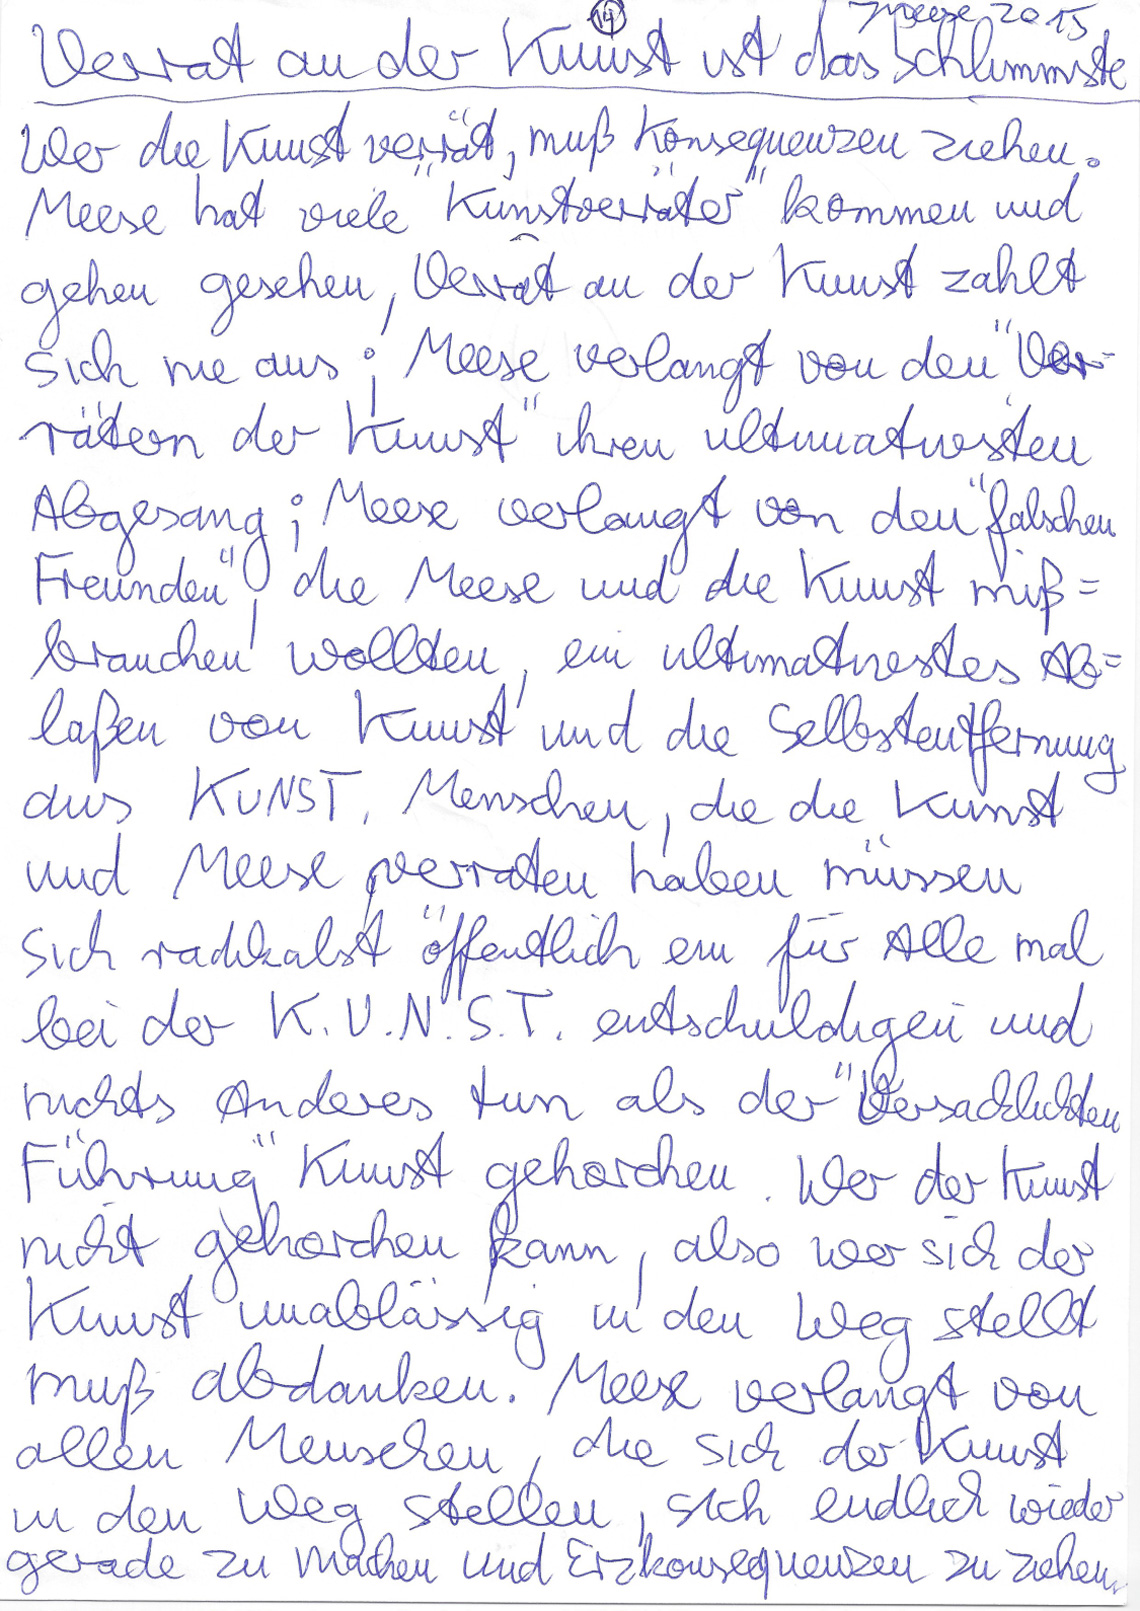 14
JMeese 2015
Verrat an der Kunst ist das Schlimmste
Wer die Kunst verrät, muß Konsequenzen ziehen.
Meese hat viele "Kunstverräter" kommen und
gehen gesehen, Verrat an der Kunst zahlt
sich nie aus; Meese verlangt von den "Ver=
rätern der Kunst" ihren ultimativsten
Abgesang; Meese verlangt von den "falschen
Freunden", die Meese und die Kunst miß=
brauchen wollten, ein ultimativestes Ab=
laßen von Kunst und die Selbstentfernung
aus KUNST. Menschen, die die Kunst
und Meese verraten haben müssen
sich radikalst öffentlich ein für Alle mal
bei der K.U.N.S.T. entschuldigen und
nichts Anderes tun als der "Versachlichten
Führung" Kunst gehorchen. Wer der Kunst
nicht gehorchen kann, also wer sich der
Kunst unablässig in den Weg stellt
muß abdanken. Meese verlangt von
allen Menschen, die sich der Kunst
in den Weg stellen, sich endlich wieder
gerade zu machen und Erzkonsequenzen zu ziehen.